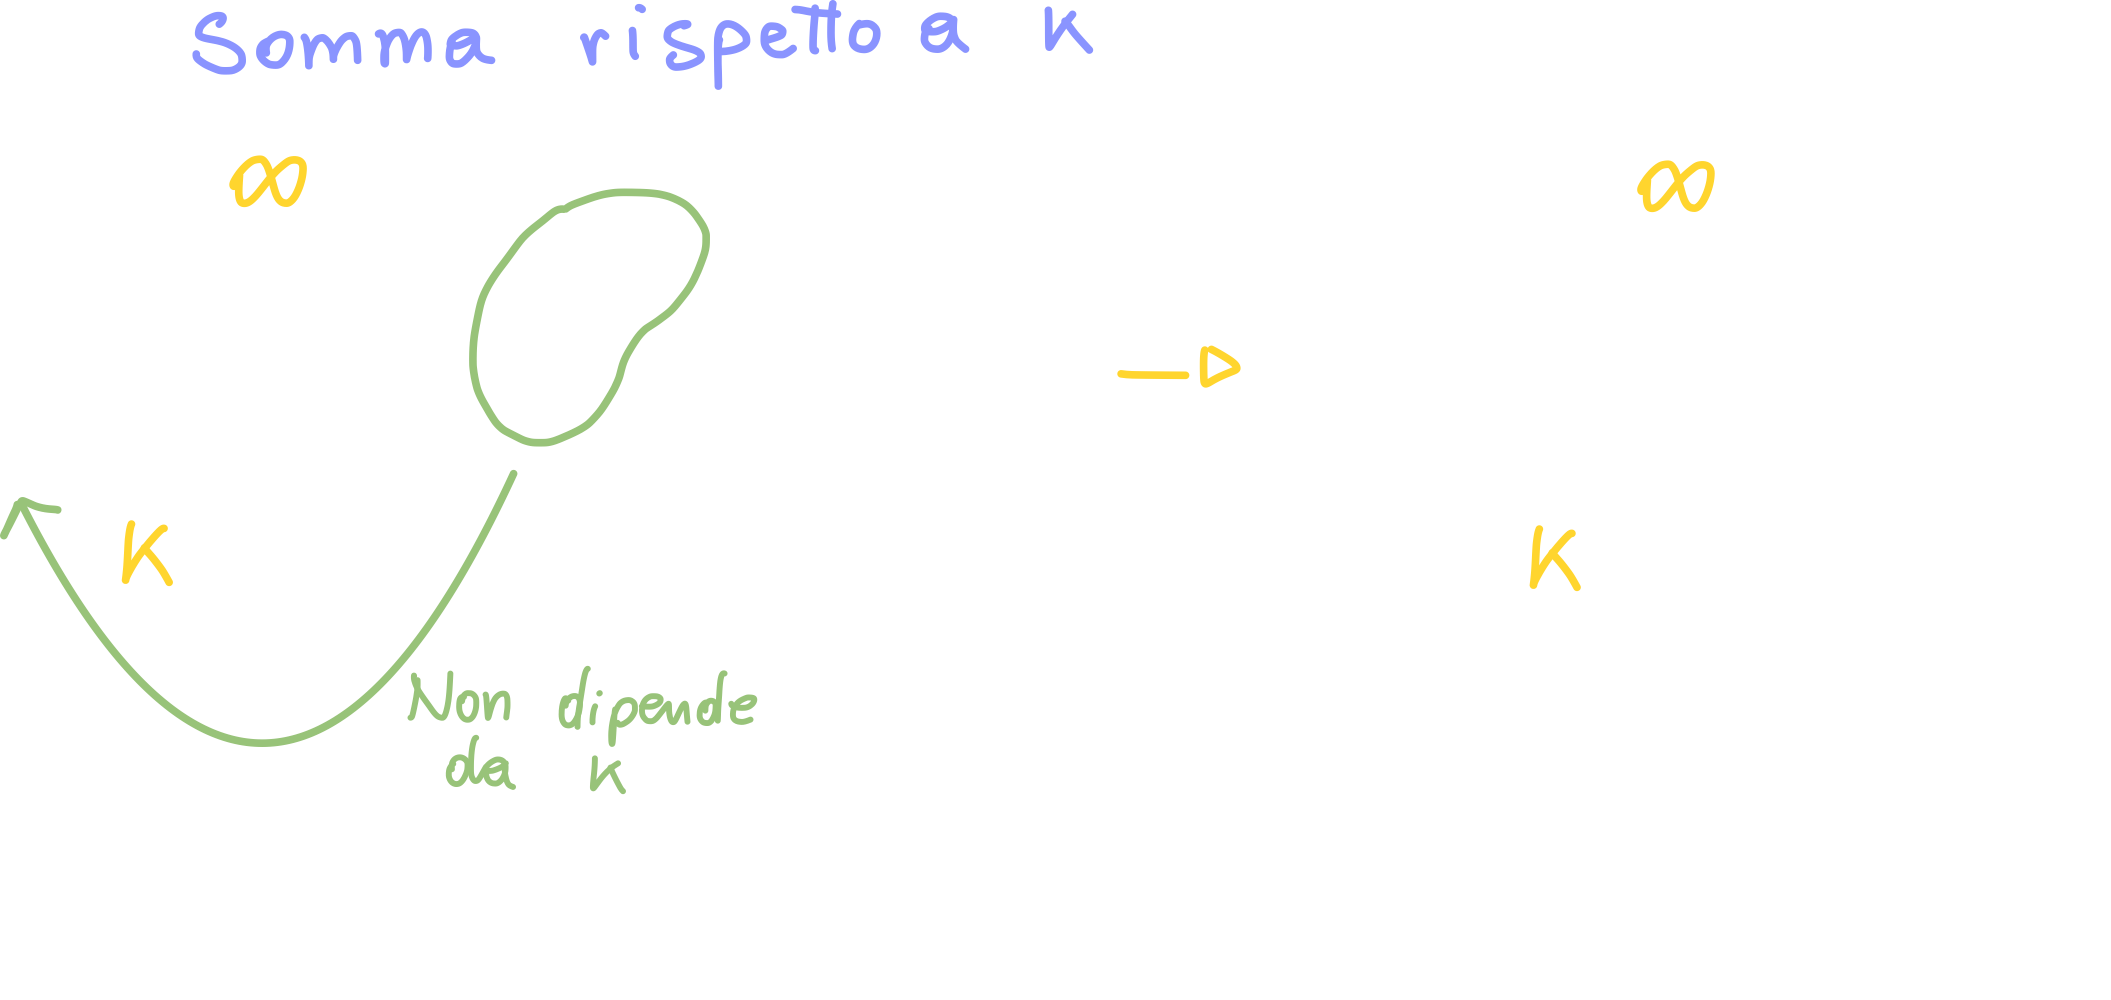 Somma rispetto a K
∞ ∞
K K
Non dipende
da K